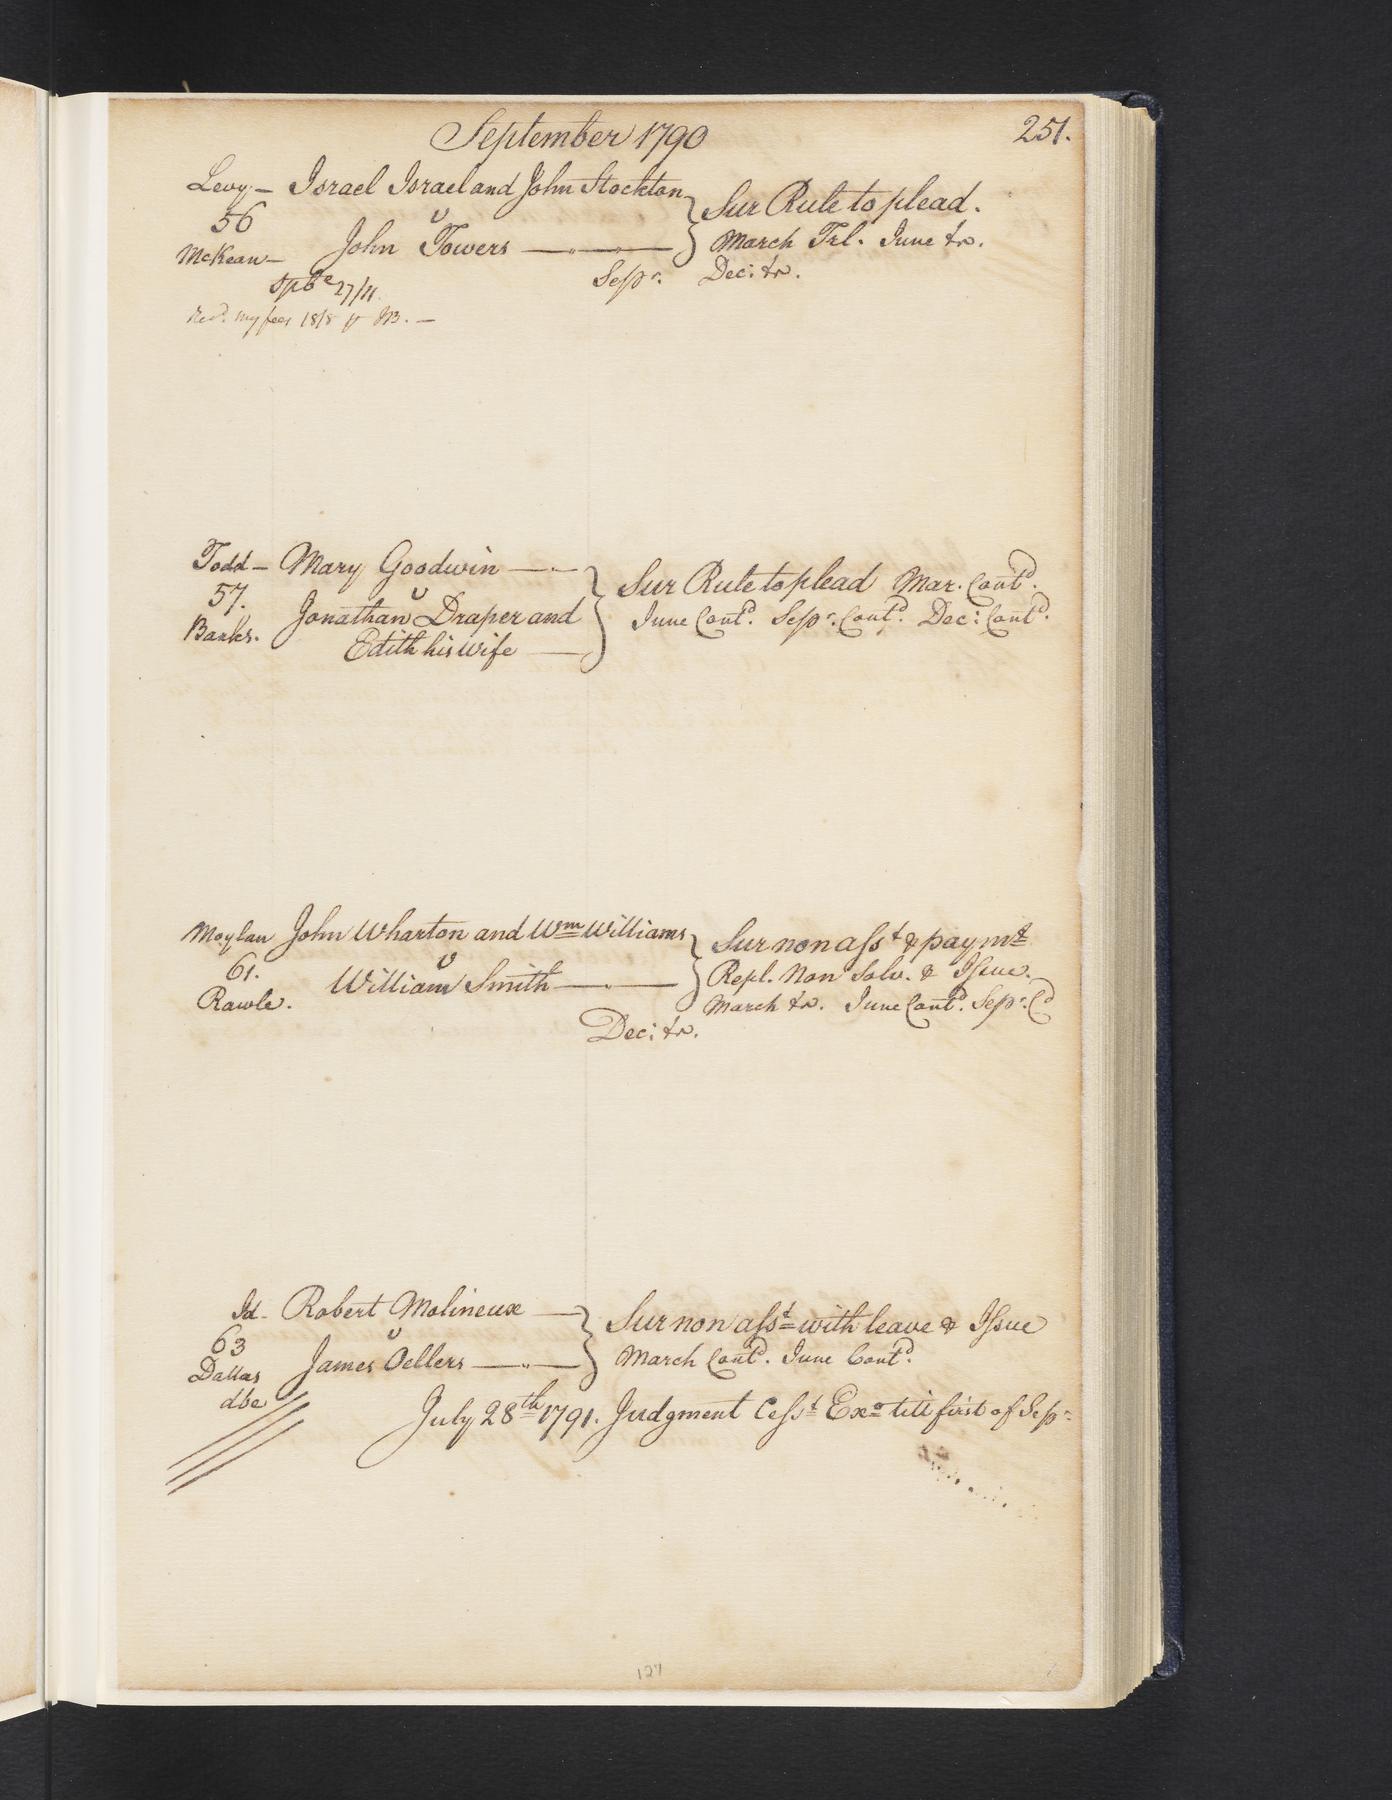 September 1790
251.
Levy- Israel Israel and John Stockton } Sur Rule to plead.
56 v
McKean- John Towers } March Trl. June &c.
Sepr. Dec: &c.
Spbe 27/11
Recd. my fees 18/8
Todd- Mary Goodwin } Sur Rule to plead Mar. Contd.
57. v
Banks. Jonathan Draper and } June Contd. Sepr. Contd. Dec: Contd.
Edith his wife
Moylan John Wharton and Wm Williams } Sur non asst & paymt
61. v Repl. Non Solv. & Issue.
Rawle. William Smith } March &c. June Contd. Sepr. Cd
Dec: &c.
Id- Robert Molineux } Sur non asst with leave & Issue
63 v
Dallas James Oellers } March Contd. June Contd.
dbe
July 28th 1791. Judgment Cesst Exo till first of Sepr
127